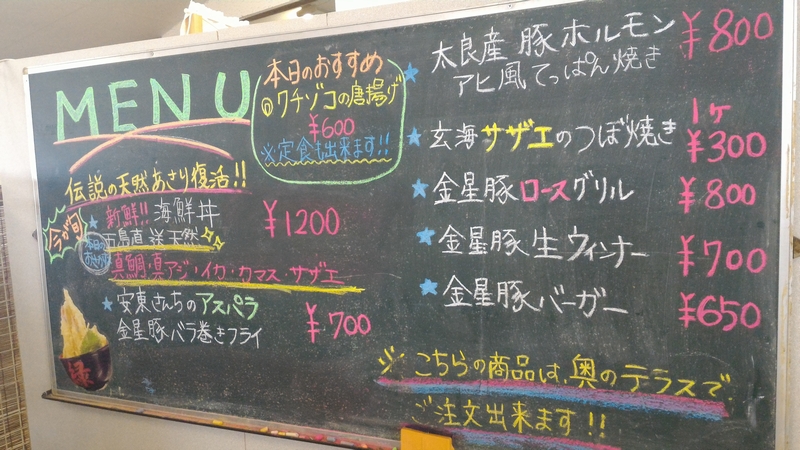 MENU
本日のおすすめ
◎クチゾコの唐揚げ
¥600
※定食も出来ます!!
伝説の天然あさり復活!!
今が旬
★新鮮!!海鮮丼 ¥1200
五島直送天然
本日の
真鯛・真アジ・イカ・カマス・サザエ
★安東さんちのアスパラ
金星豚バラ巻きフライ ¥700
縁
★太良産 豚ホルモン ¥800
アヒ風てっぱん焼き
1ヶ
★玄海サザエのつぼ焼き ¥300
★金星豚ロースグリル ¥800
★金星豚生ウィンナー ¥700
★金星豚バーガー ¥650
※こちらの商品は、奥のテラスで
ご注文出来ます!!